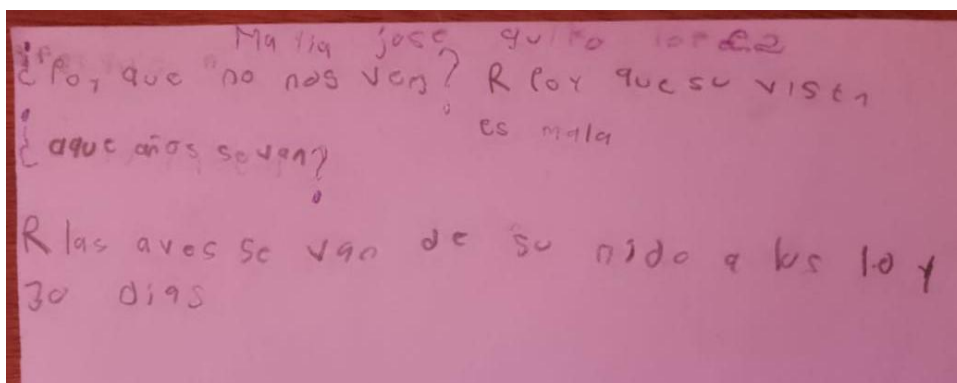 Maria jose
¿Por que no nos ven? R Por que su vista
es mala
¿aque años sevan?
R las aves se van de su nido a los 10 y
30 dias